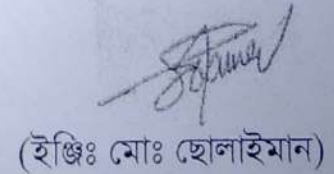 (ইঞ্জিঃ মোঃ ছোলাইমান)